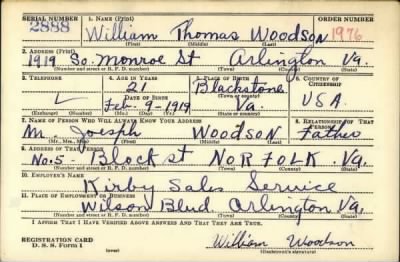 SERIAL NUMBER 1. NAME (Print)
2888 William Thomas Woodson 1976
(First) (Middle) (Last)
2. ADDRESS (Print)
1919 So. Monroe St Arlington Va.
(Number and street or R. F. D. number) (Town) (County) (State)
3. TELEPHONE 4. AGE IN YEARS 5. PLACE OF BIRTH 6. COUNTRY OF CITIZENSHIP
21 Blackstone
DATE OF BIRTH (Town or county)
Feb. 9-1919 Va. USA.
(Mo.) (Day) (Yr.) (State or country)
7. NAME OF PERSON WHO WILL ALWAYS KNOW YOUR ADDRESS 8. RELATIONSHIP OF THAT PERSON
M. Joesph WOODSON Father
(First) (Middle) (Last)
9. ADDRESS OF THAT PERSON
No. 5- Block st NORFOLK. Va.
(Number and street or R. F. D. number) (Town) (County) (State)
10. EMPLOYER'S NAME
Kirby Sales Service
11. PLACE OF EMPLOYMENT OR BUSINESS
Wilson Blvd. Arlington Va.
(Number and street or R. F. D. number) (Town) (County) (State)
I AFFIRM THAT I HAVE VERIFIED ABOVE ANSWERS AND THAT THEY ARE TRUE.
REGISTRATION CARD
D. S. S. Form 1 William Woodson
(Registrant's signature)